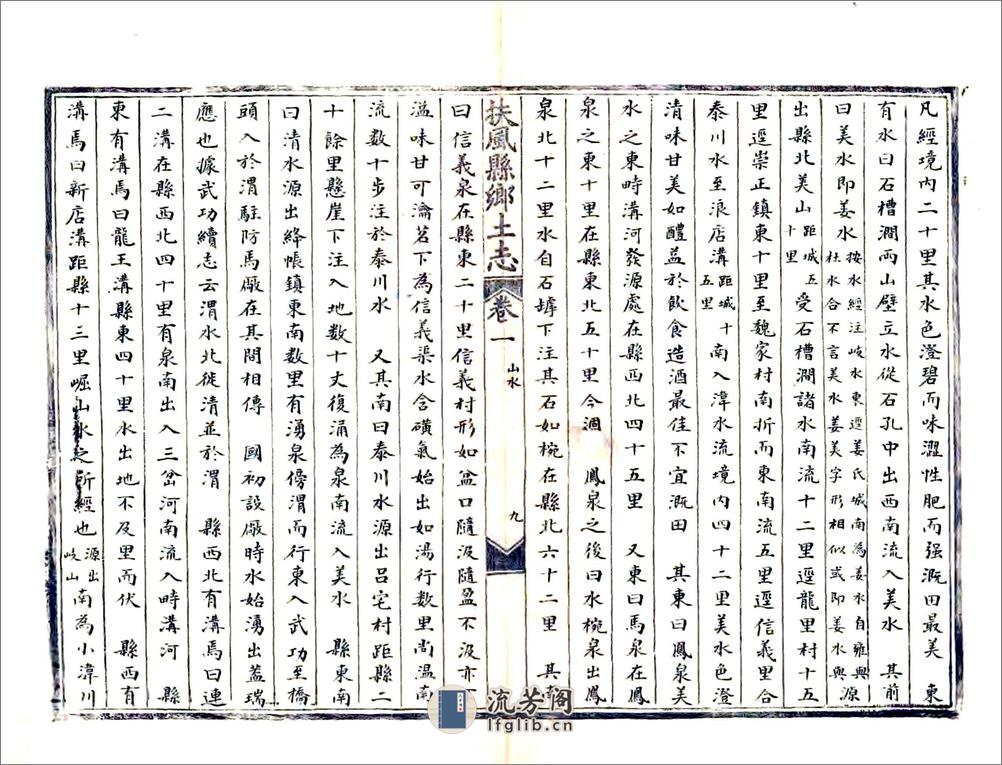 凡經境内二十里其水色澄碧而味澀性肥而强溉田最美　東
有水曰石槽澗兩山壁立水從石孔中出西南流入美水　其前
曰美水即姜水按水經注岐水東逕姜氏城南為姜水自雍與杜水合不言美水姜美字形相似或即姜水與源
出縣北美山距城五十里受石槽澗諸水南流十二里逕龍里村十五
里逕崇正鎮東十里至魏家村南折而東南流五里逕信義里合
泰川水至浪店溝距城十五里南入湋水流境内四十二里美水色澄
清味甘美如醴益於飲食造酒最佳不宜溉田　其東曰鳳泉美
水之東時溝河發源處在縣西北四十五里　又東曰馬泉在鳳
泉之東十里在縣東北五十里今涸　鳳泉之後曰水椀泉出鳳
泉北十二里水自石罅下注其石如椀在縣北六十二里　其南
扶風縣鄉土志　卷一　山水　九
曰信義泉在縣東二十里信義村形如盆口隨汲隨盈不汲亦
溢味甘可瀹茗下為信義渠水含磺氣始出如湯行數里尚溫南
流數十步注於泰川水　又其南曰泰川水源出呂宅村距縣二
十餘里懸崖下注入地数十丈復涌為泉南流入美水　縣東南
曰清水源出絳帳鎮東南数里有湧泉傍渭而行東入武功至橋
頭入於渭駐防馬廠在其間相傳　國初設廠時水始湧出蓋瑞
應也據武功續志云渭水北徙清並於渭　縣西北有溝馬曰連
二溝在縣西北四十里有泉南出入三岔河南流入時溝河　縣
東有溝馬曰龍王溝縣東四十里水出地不及里而伏　縣西有
溝馬曰新店溝距縣十三里崛山水之所經也源出岐山南為小湋川
流芳閣
lfglib.cn